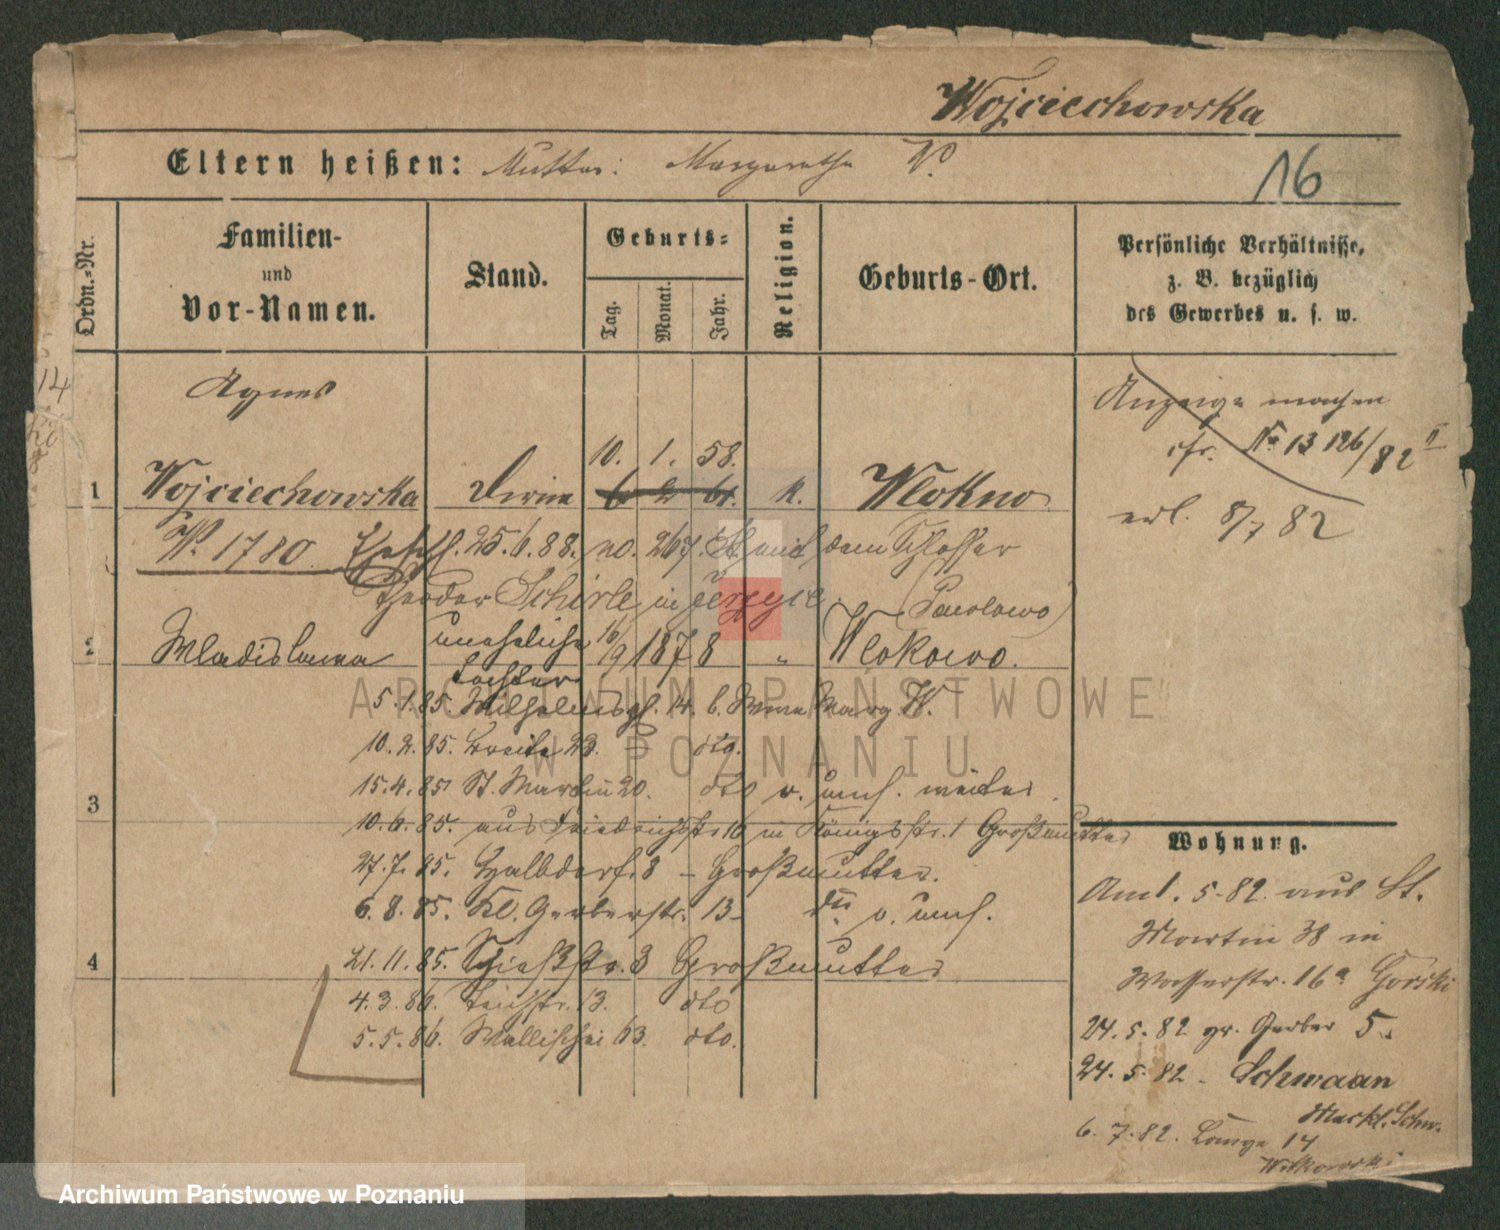 Wojciechowska
Eltern heißen: Mutter: Margarethe W.
16
Ordn.-Nr.
Familien-
und
Vor-Namen.
Stand.
Geburts-
Tag.
Monat.
Jahr.
Religion.
Geburts-Ort.
Persönliche Verhältnisse,
z. B. bezüglich
des Gewerbes u. s. w.
14
Agnes
Anzeige machen
cfr. No 13126/82 II
10. 1. 58.
1 Wojciechowska Dirne 6 2 61. k. Wlokno
erl. 8/7 82
W. 1780. Ehesch. 25.6.88. no. 267. mit dem Schlosser
Theodor Schirle in Jerzyce.
(Pawlowo)
2 Wladislawa uneheliche Tochter 16/9 1878 " Wlokowo.
5.1.85. Wilhelmspl. 14. b. Marg. W.
10.2.85. Breite 23. dto.
15.4.85 St. Martin 20. dto u. umh. weiter
3
10.6.85. aus Friedrichstr. 16 in Königsstr. 1 Großmutter
27.7.85. Halbdorf. 8 - Großmutter.
6.8.85. Kl. Gerberstr. 13 - do. u. umh.
4 21.11.85. Schießstr. 3 Großmutter
4.3.86. Teichstr. 13. dto
5.5.86. Wallischei 63. dto.
Wohnung.
Am 1. 5. 82. aus St.
Martin 38 in
Wasserstr. 16a Gorski
24.5.82 gr. Gerber 5.
24.5.82 - Schwaan
Markt. Schw.
6.7.82. Lange 14
Witkowski
ARCHIWUM PAŃSTWOWE
W POZNANIU
Archiwum Państwowe w Poznaniu